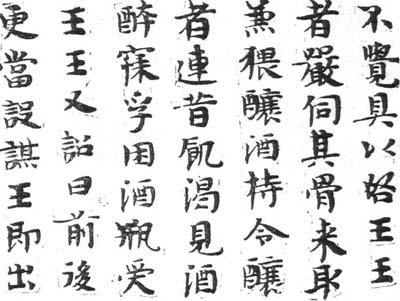 不覺具以啓王王
者嚴伺其骨来取
兼猥釀酒特令釀
者連昔飢渴見酒
醉寐孚酒瓶受
王王又詔曰前後
更當設謀王即出